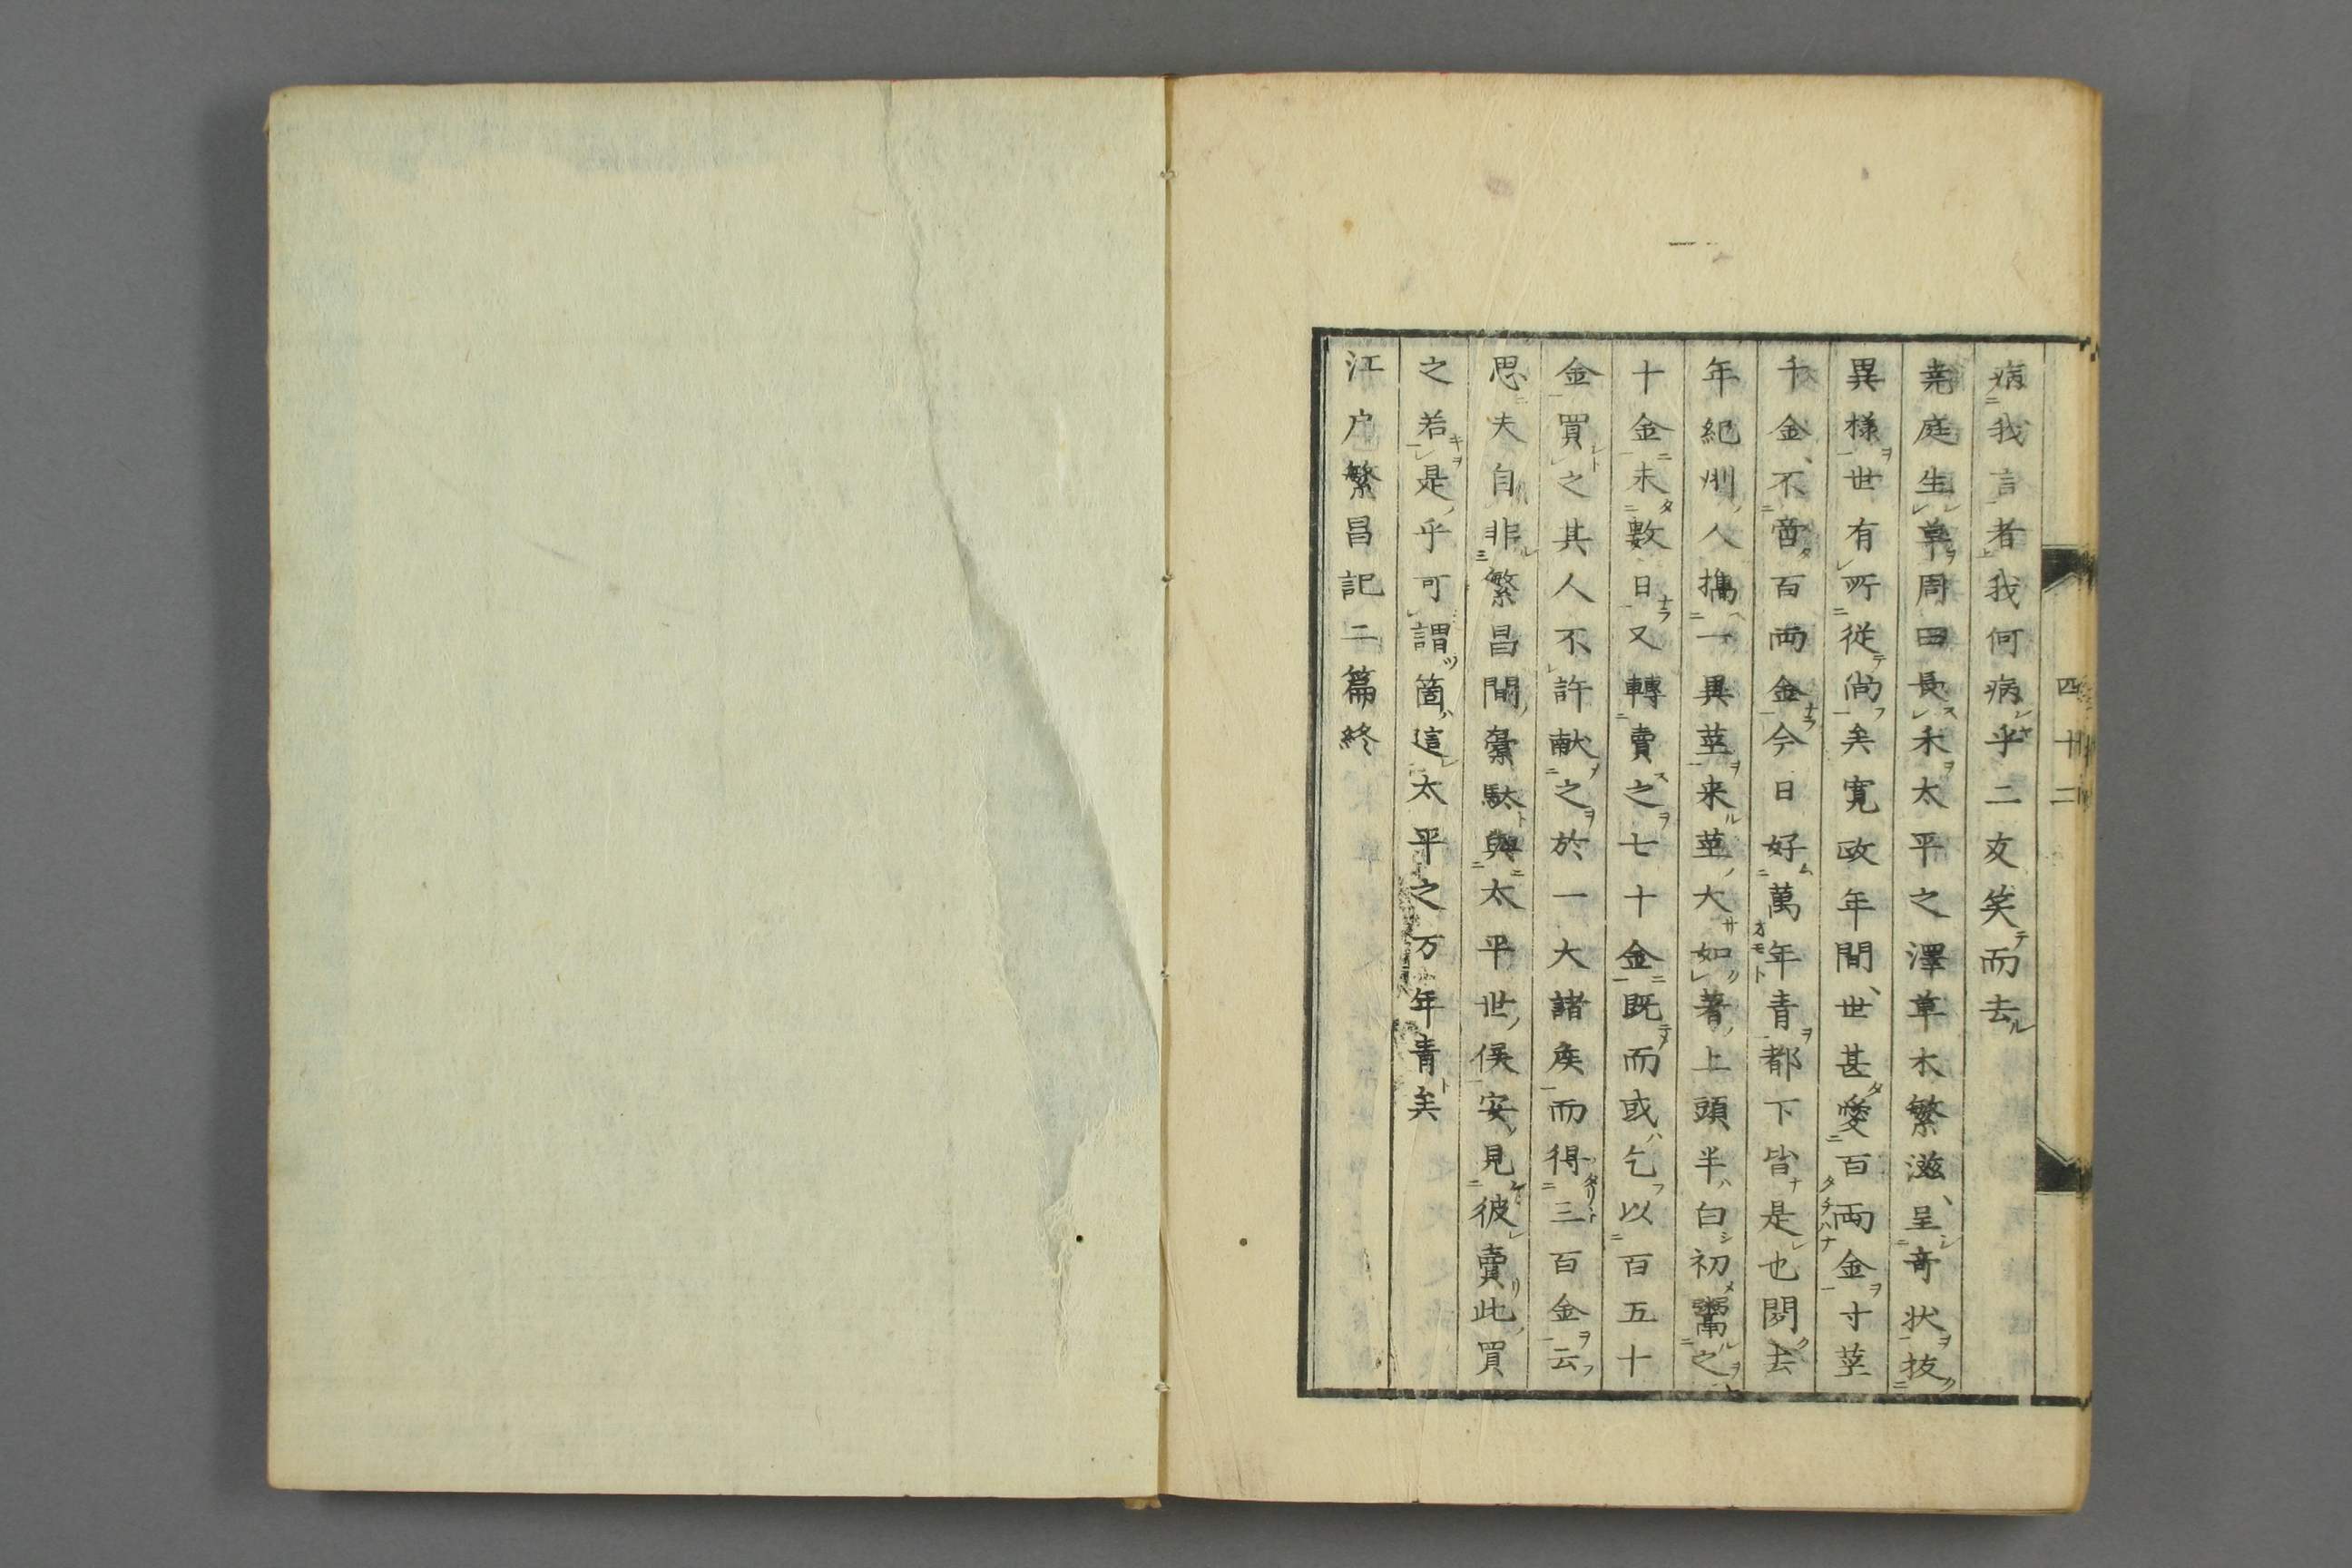 四十二
病我言者我何病乎二友笑而去
堯庭生草周田長禾太平之澤草木繁滋、呈奇状抜
異様世有所從尚矣寛政年間、世甚愛百両金寸莖
千金、不啻百両金今日好萬年青都下皆是也閧去
年紀州人攜一異莖来莖大如著上頭半白初鬻之
十金未數日又轉賣之七十金既而或乞以百五十
金買之其人不許献之於一大諸矦而得三百金云
思夫自非繁昌間橐駄與太平世侯安見彼賣此買
之若是乎可謂箇這太平之万年青矣
江户繁昌記二篇終